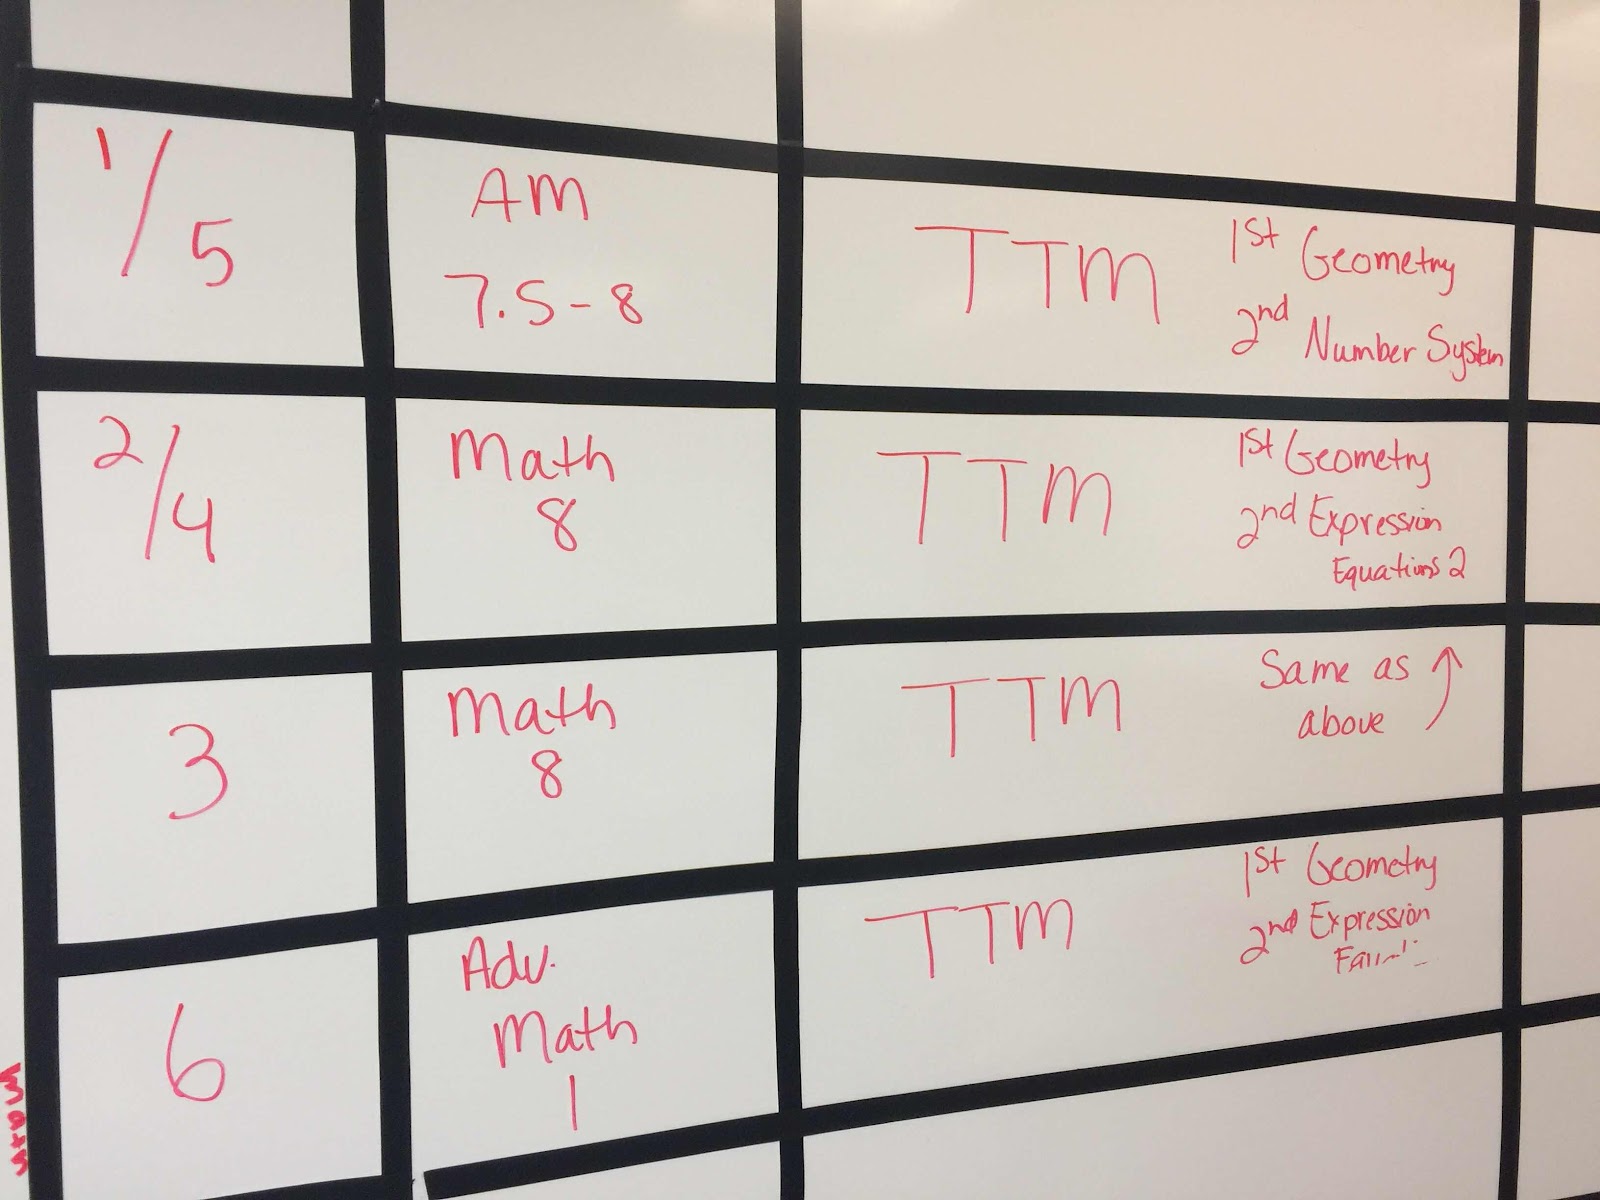 1/5
AM
7.5-8
TTM
1st Geometry
2nd Number System
2/4
Math
8
TTM
1st Geometry
2nd Expression
Equations 2
3
Math
8
TTM
Same as
above
6
Adv.
Math
1
TTM
1st Geometry
2nd Expression
Math